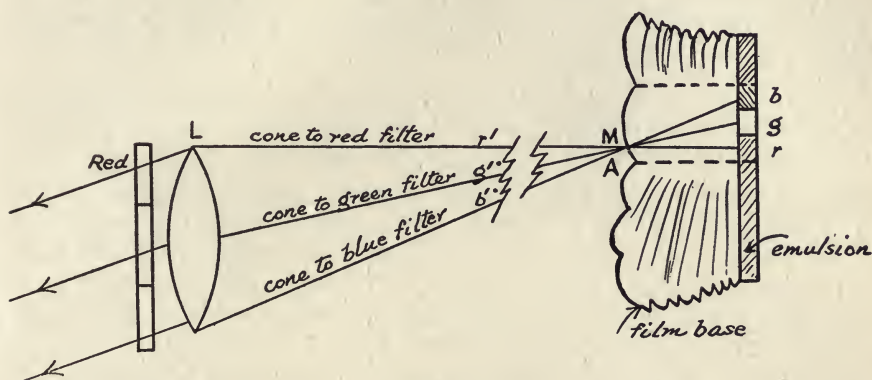 L
Red
cone to red filter
r'
cone to green filter
g'
cone to blue filter
b'
M
A
b
g
r
emulsion
film base